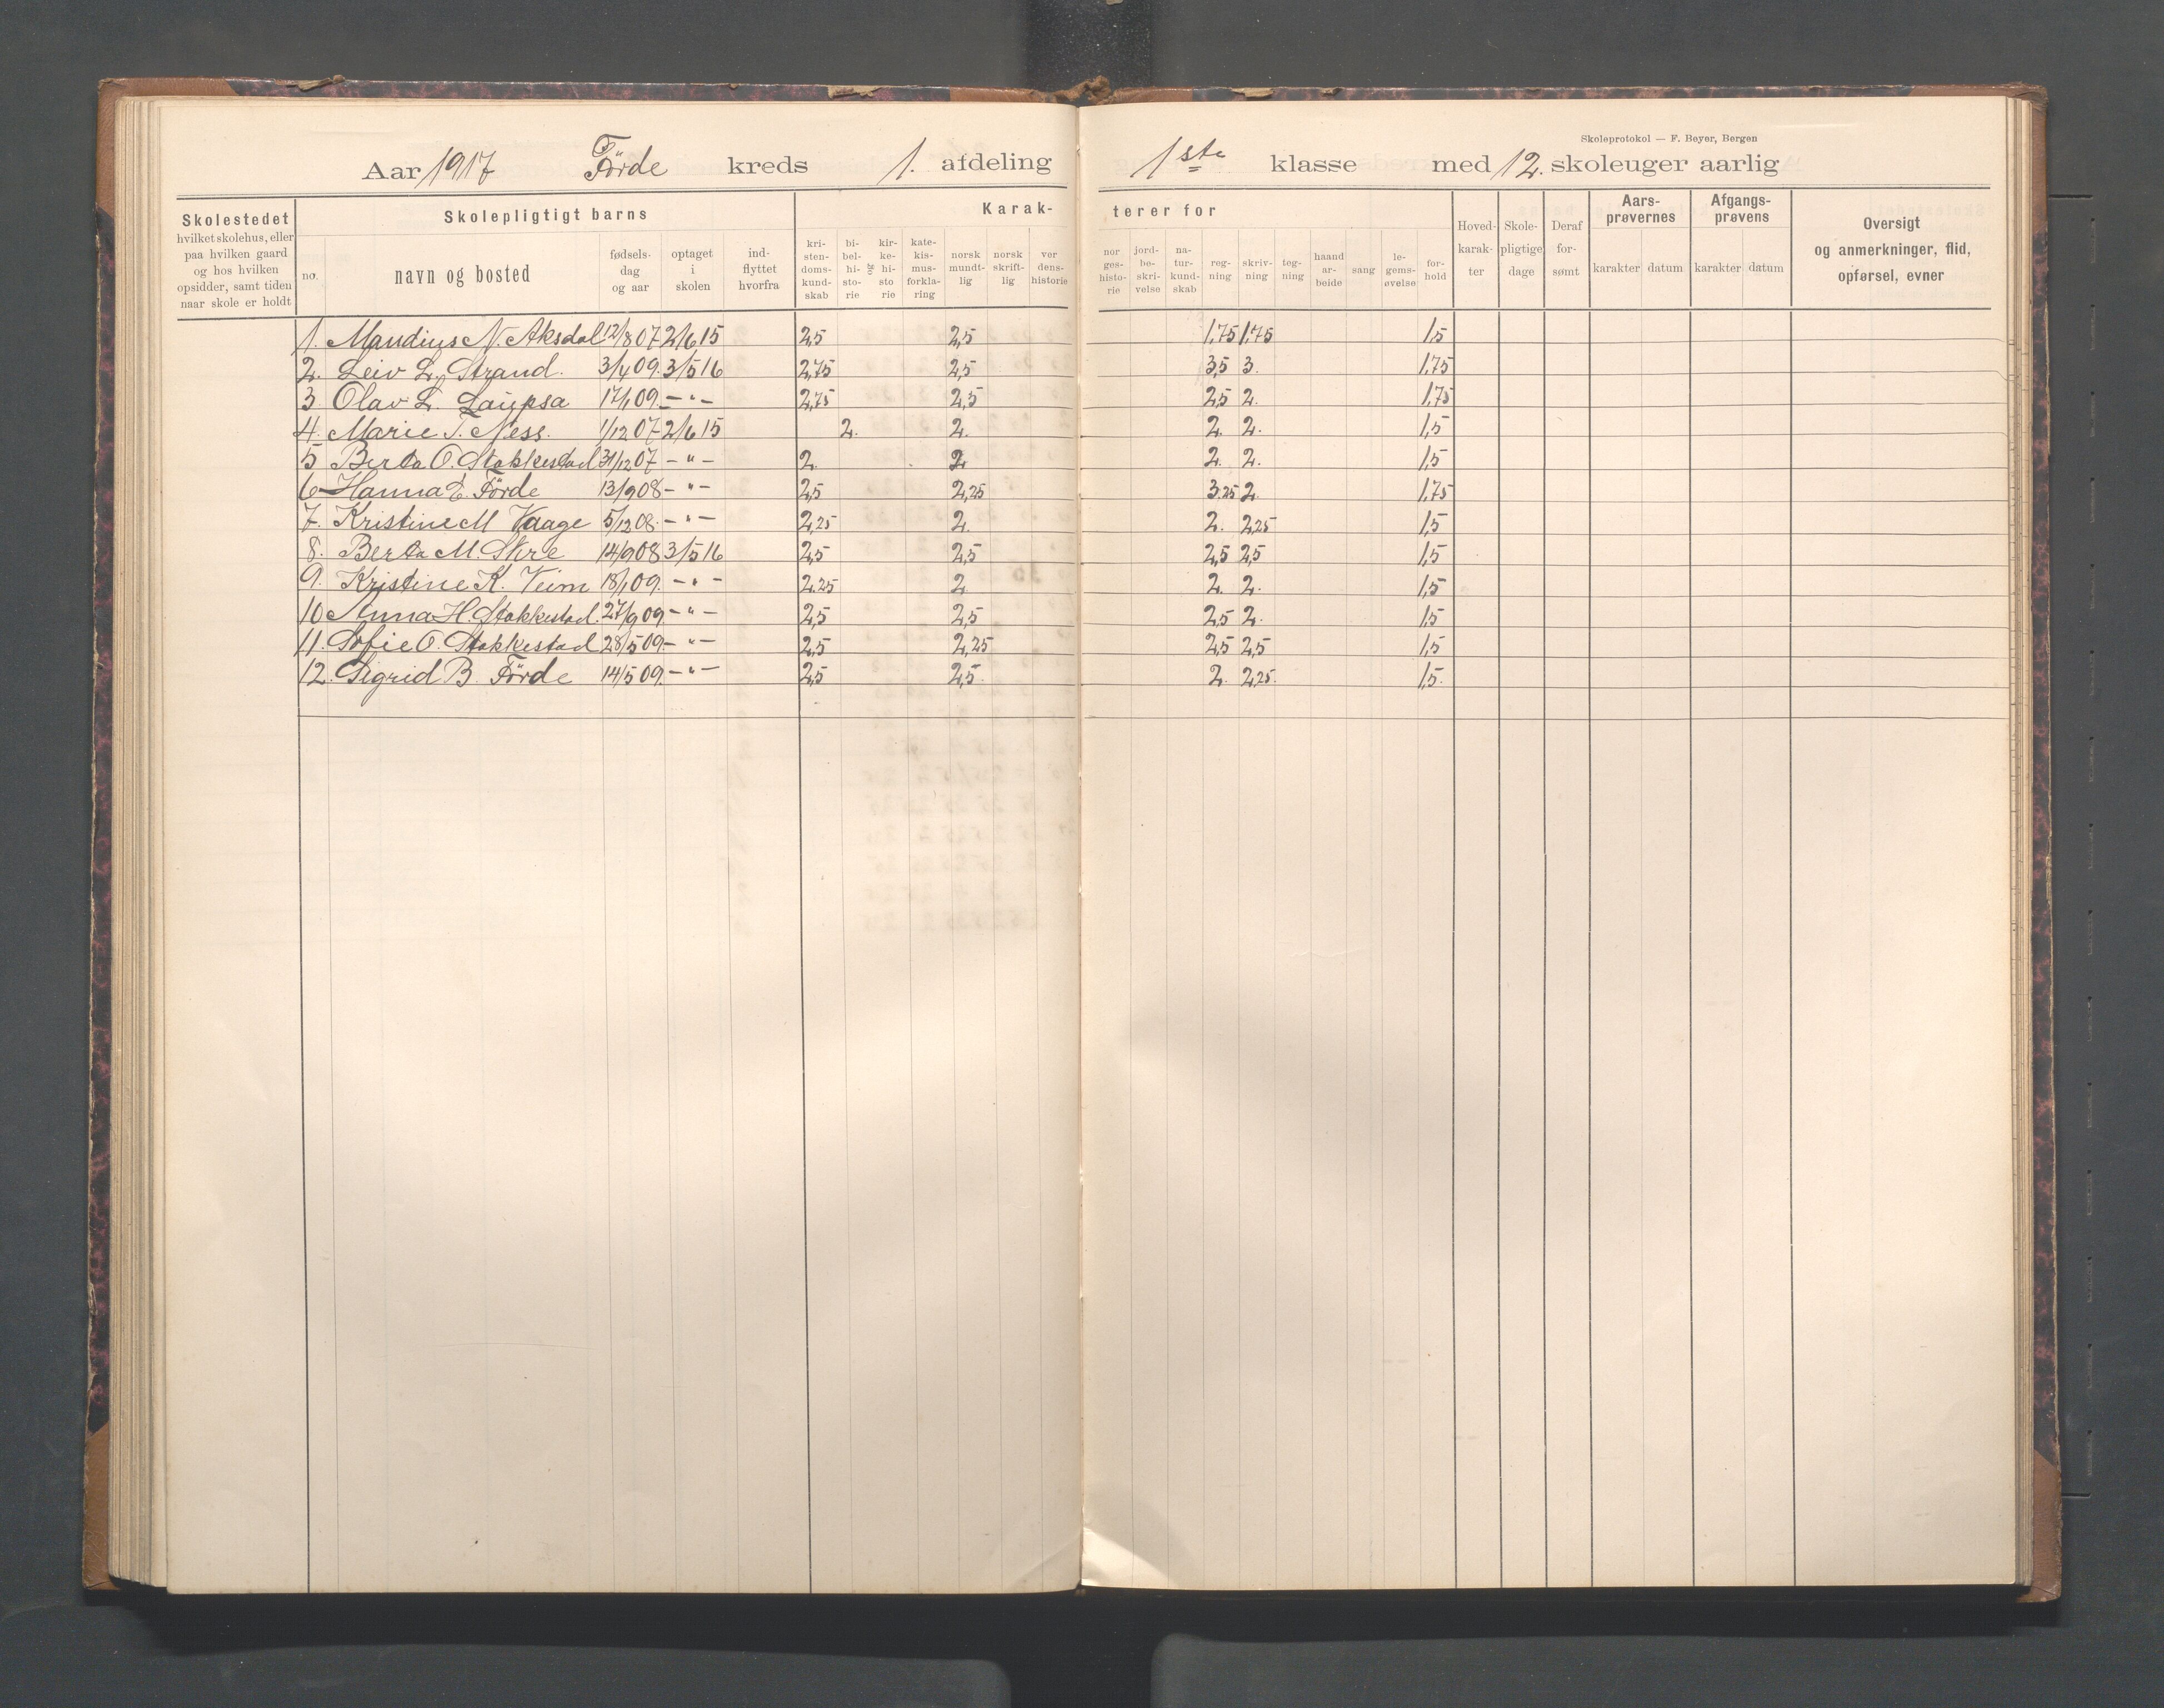 Skoleprotokol — F. Beyer, Bergen
Aar 1917 Förde kreds 1. afdeling 1ste klasse med 12. skoleuger aarlig
Skolestedet
hvilket skolehus, eller
paa hvilken gaard
og hos hvilken
opsidder, samt tiden
naar skole er holdt
Skolepligtigt barns
no.
navn og bosted
fødsels-
dag
og aar
optaget
i
skolen
ind-
flyttet
hvorfra
Karak-
kri-
sten-
doms-
kund-
skab
bi-
bel-
hi-
sto-
rie
og
kir-
ke-
hi-
sto
rie
kate-
kis-
mus-
forkla-
ring
norsk
mundt-
lig
norsk
skrift-
lig
ver
dens-
historie
terer for
nor
ges-
histo-
rie
jord-
be-
skri-
velse
na-
tur-
kund-
skab
reg-
ning
skriv-
ning
teg-
ning
haand
ar-
beide
sang
le-
gems-
øvelse
for-
hold
Hoved-
karak-
ter
Skole-
pligtige
dage
Deraf
for-
sømt
Aars-
prøvernes
karakter datum
Afgangs-
prøvens
karakter datum
Oversigt
og anmerkninger, flid,
opførsel, evner
1. Mandius N. Aksdal 12/8 07 2/6 15 2,5 2,5 1,75 1,75 1,5
2. Leiv L. Strand. 3/4 09. 3/5 16 2,75 2,5 3,5 3. 1,75
3. Olav L. 17/1 09. – " – 2,75 2,5 2,5 2. 1,75
4. Marie T. Ness. 1/12 07 2/6 15 2. 2. 2. 2. 1,5
5 Berta O. Stakkestad 31/12 07 – " – 2. 2. 2. 2. 1,5
6 Hanna E. Förde 13/9 08 – " – 2,5 2,25 3,25 2. 1,75
7. Kristine M Vaage 5/12 08. – " – 2,25 2. 2. 2,25 1,5
8. Berta M. 14/9 08 3/5 16 2,5 2,5 2,5 2,5 1,5
9. Kristine K. Veim 18/1 09. – " – 2.25 2. 2. 2. 1,5
10 Anna H. Stakkestad. 27/9 09 – " – 2,5 2,5 2,5 2. 1,5
11. Sofie O. Stakkestad 28/5 09. – " – 2,5 2,25 2,5 2,5 1,5
12. Sigrid B. Förde 14/5 09. – " – 2,5 2,5. 2. 2,25. 1,5.